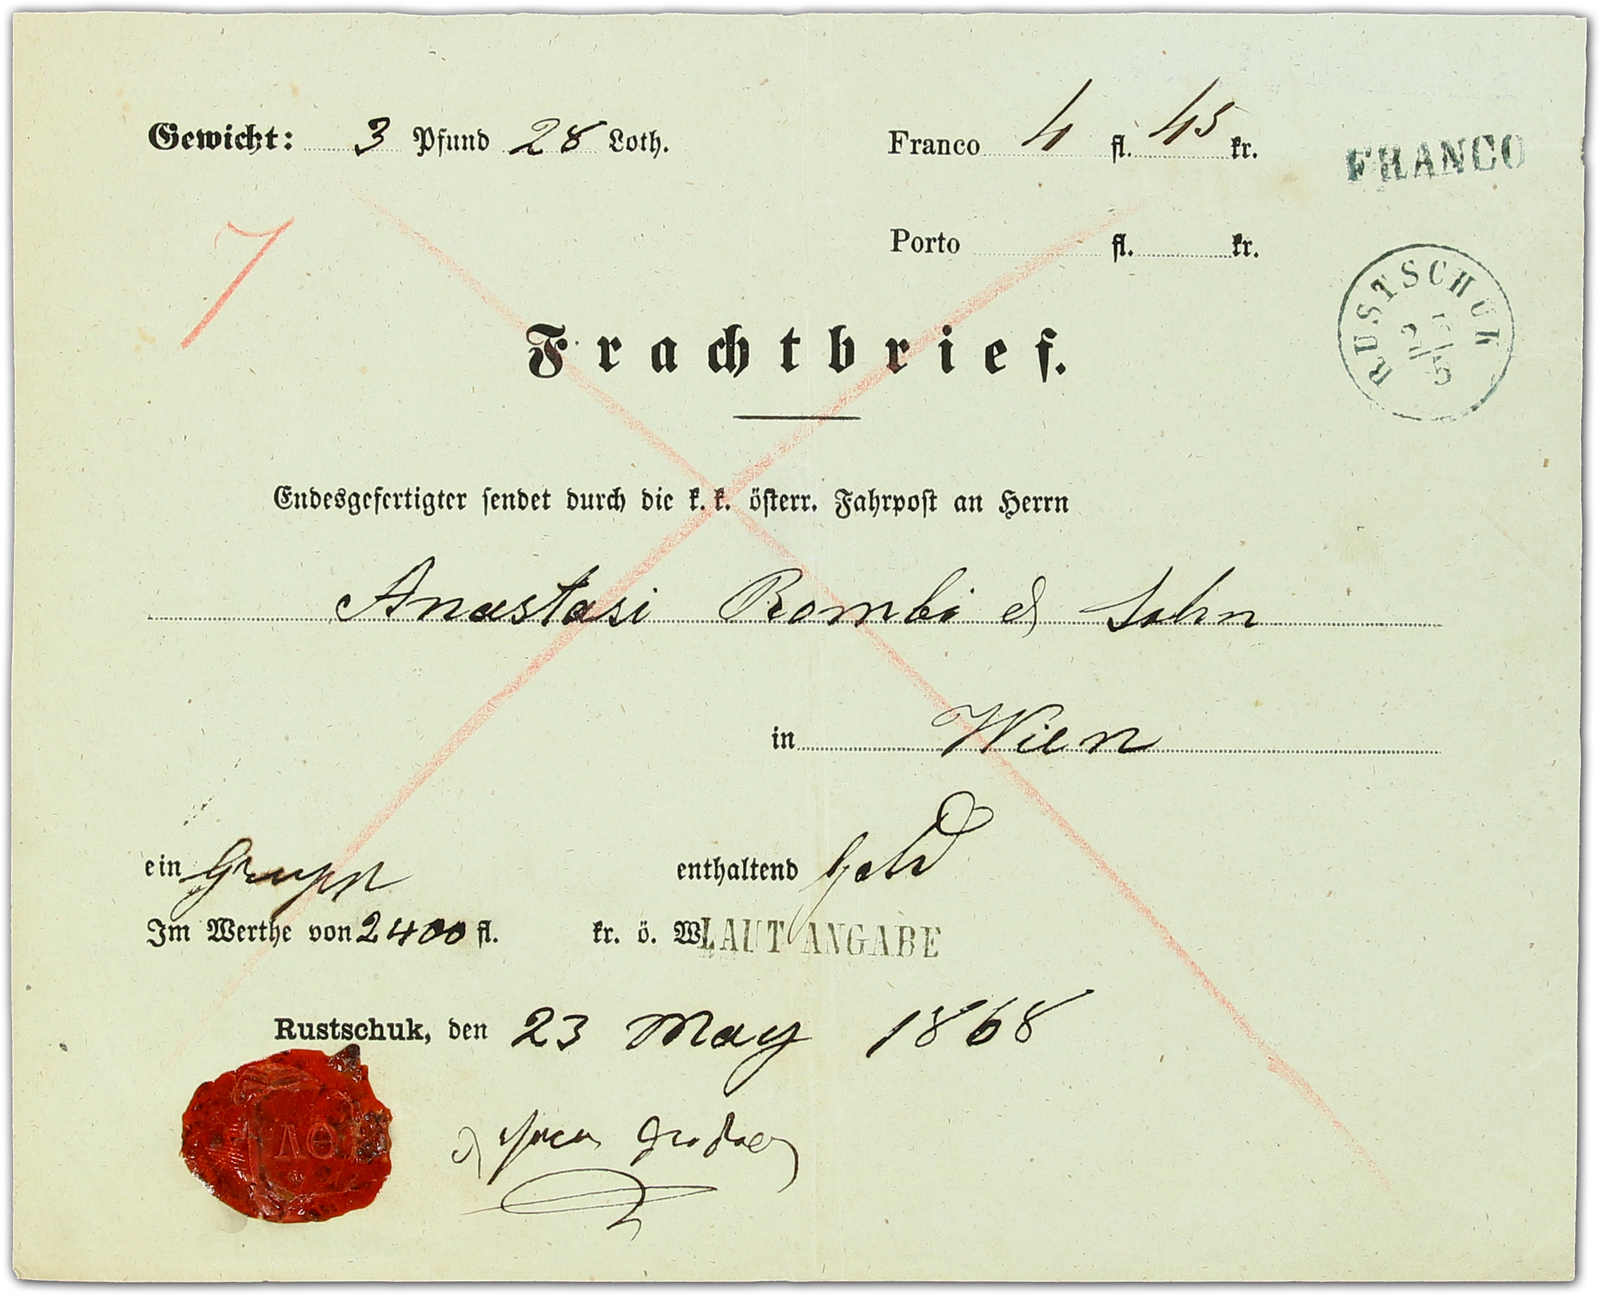 Gewicht: 3 Pfund 28 Loth.
Franco 4 fl. 45 kr.
FRANCO
Porto fl. kr.
7
RUSTSCHUK
23/5
Frachtbrief.
Endesgefertigter sendet durch die k. k. österr. Fahrpost an Herrn
Anastasi Rombi & Sohn
in Wien
ein Grupp enthaltend Geld
Im Werthe von 2400 fl. kr. ö. W
LAUT ANGABE
Rustschuk, den 23 May 1868
ΛΘ